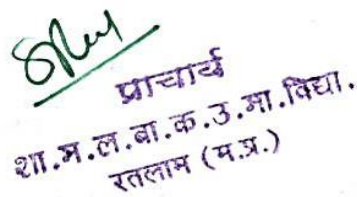 प्राचार्य
शा.म.ल.बा.क.उ.मा.विद्या.
रतलाम (म.प्र.)